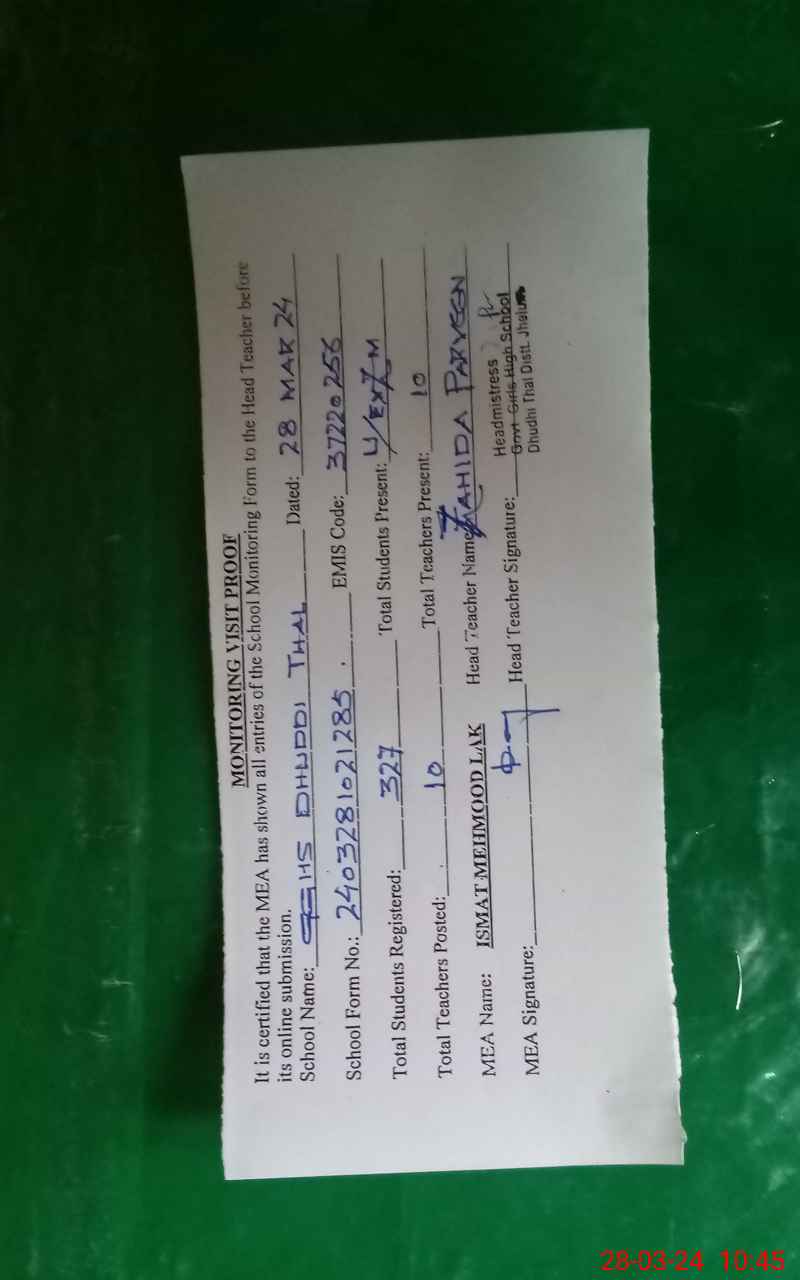 MONITORING VISIT PROOF
It is certified that the MEA has shown all entries of the School Monitoring Form to the Head Teacher before
its online submission.
School Name: GGHS DHUDDI THAL Dated: 28 MAR 24
School Form No.: 2403281021285 EMIS Code: 37220256
Total Students Registered: 327 Total Students Present: U/EXZM
Total Teachers Posted: 10 Total Teachers Present: 10
MEA Name: ISMAT MEHMOOD LAK Head Teacher Name: ZAHIDA PARVEEN
MEA Signature: Head Teacher Signature:
Headmistress
Govt Girls High School
Dhudhi Thal Distt. Jhelum
28-03-24 10:45